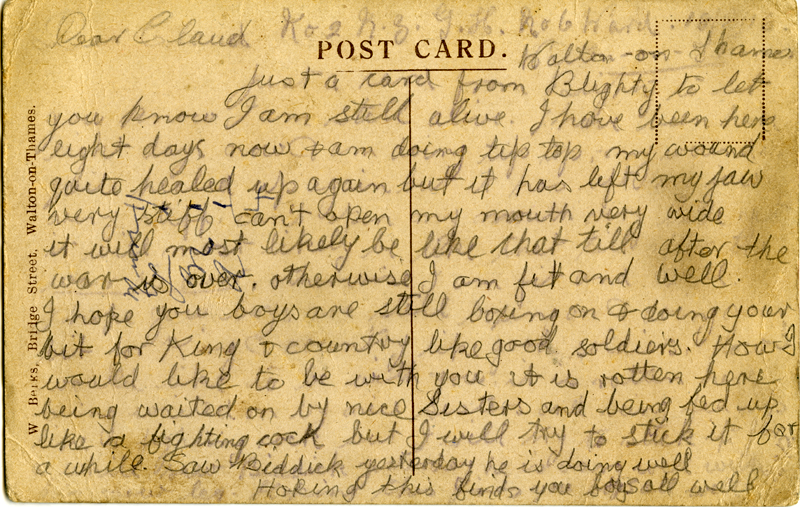 Dear Claud No 2 N.Z. G.H. No 6 Ward
POST CARD.
Walton-on-Thames
Just a card from Blighty to let
you know I am still alive. I have been here
eight days now & am doing tip top my wound
quite healed up again but it has left my jaw
very stiff can't open my mouth very wide
it will most likely be like that till after the
war is over. otherwise I am fit and well
I hope you boys are still boxing on & doing your
bit for King & country like good soldiers. How I
would like to be with you it is rotten here
being waited on by nice Sisters and being fed up
like a fighting cock but I will try to stick it for
a while. Saw Biddick yesterday he is doing well
Hoping this finds you boys all well
Bridge Street, Walton-on-Thames.